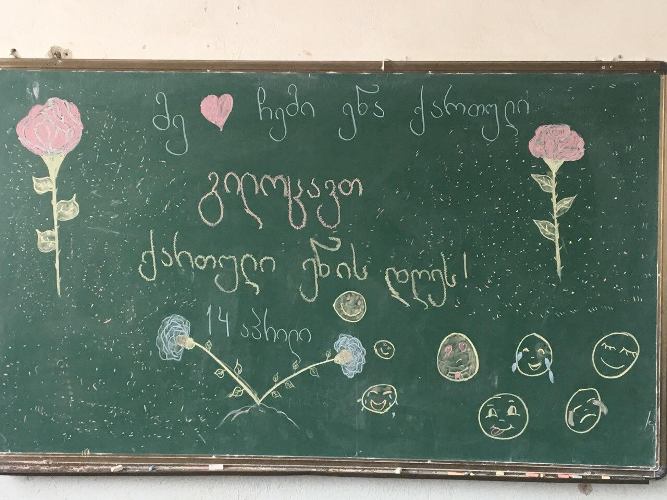 მე ♥ ჩემი ენა ქართული
გილოცავთ
ქართული ენის დღეს!
14 აპრილი